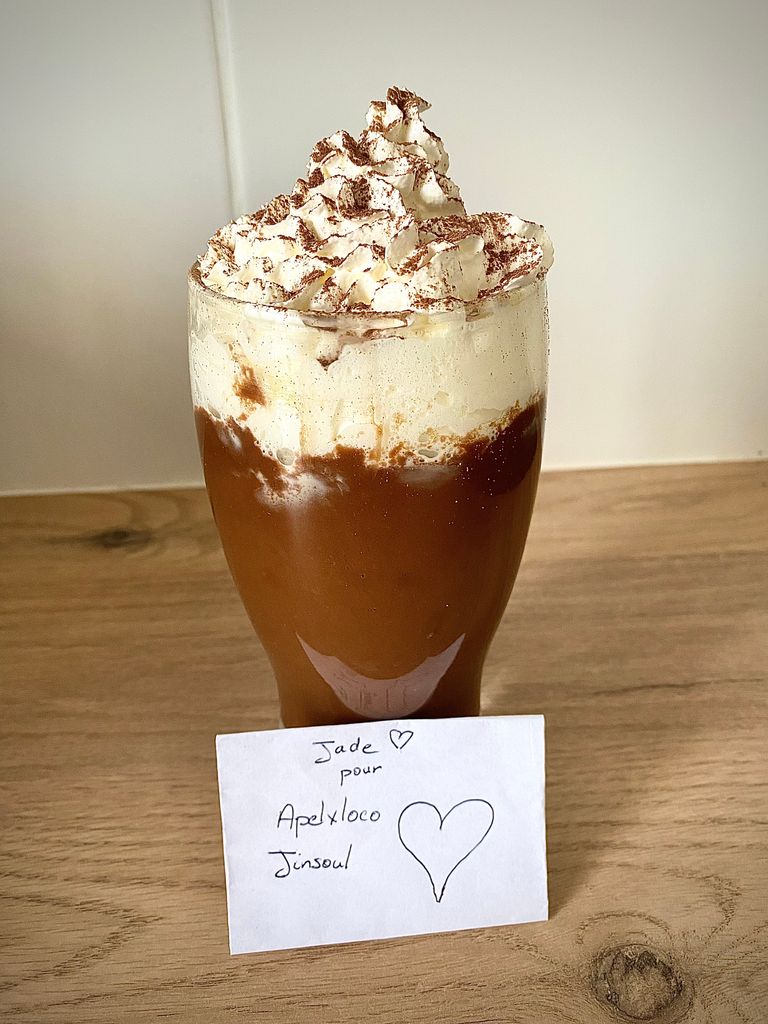 Jade ♡
pour
Apelxloco
Jinsoul